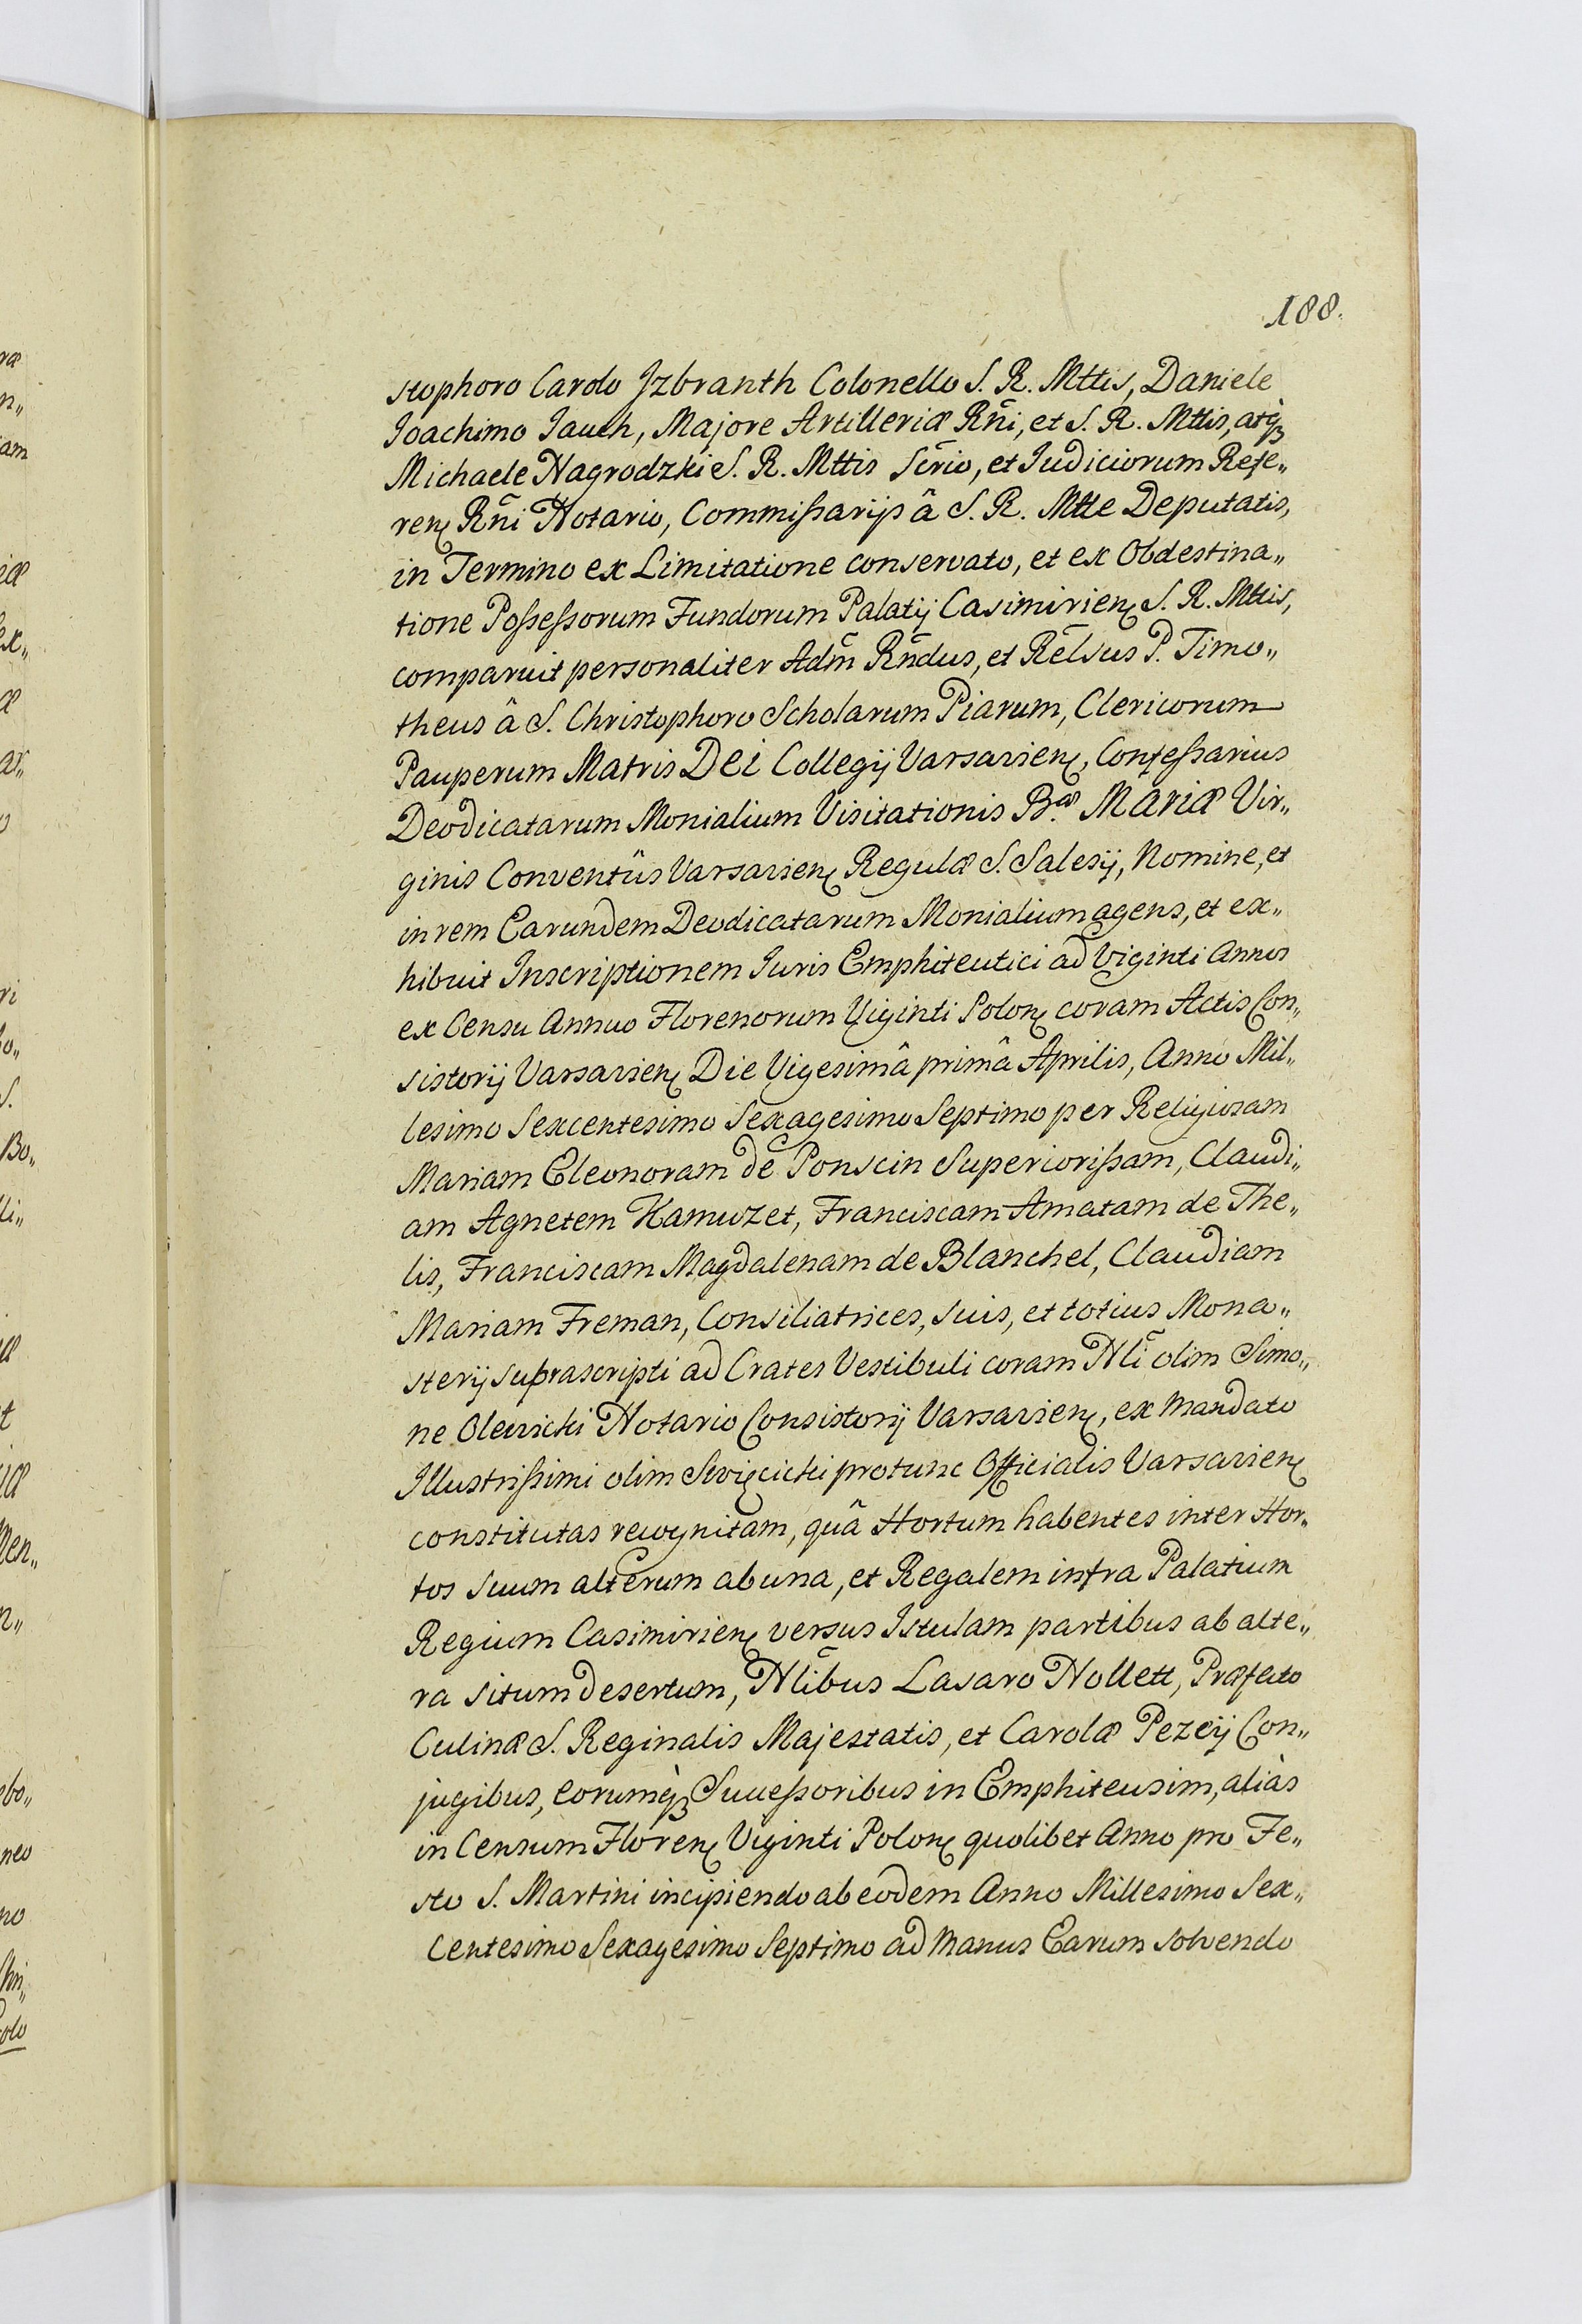 188.
stophoro Carolo Jzbranth Colonello S. R. Mttis, Daniele
Joachimo Jauch, Majore Artilleriæ Rñi, et S. R. Mttis, atq̀ꝫ
Michaele Nagrodzki S. R. Mttis Scrio, et Judiciorum Refe„
ren Rñi Notario, Commißarijs â S. R. Mtte Deputatis,
in Termino ex Limitatione conservato, et ex Obdestina„
tione Poßeßorum Fundorum Palatij Casimirien S. R. Mttis,
comparuit personaliter Adm̃ Rñdus, et Rel̃sus P. Timo„
theus â S. Christophoro Scholarum Piarum, Clericorum
Pauperum Matris Dei Collegij Varsavien, Confeßarius
Deodicatarum Monialium Visitationis B.æ Mariæ Vir„
ginis Conventûs Varsavien Regulæ S. Salesij, Nomine, et
in rem Earundem Deodicatarum Monialium agens, et ex„
hibuit Inscriptionem Juris Emphiteutici ad Viginti Annos
ex Censu Annuo Florenorum Viginti Polon coram Actis Con„
sistorij Varsavien Die Vigesimâ primâ Aprilis, Anno Mil„
lesimo Sexcentesimo Sexagesimo Septimo per Religiosam
Mariam Eleonoram de Ponscin Superiorißam, Claudi„
am Agnetem Kamuzet, Franciscam Amatam de The„
lis, Franciscam Magdalenam de Blanchel, Claudiam
Mariam Freman, Consiliatrices, suis, et totius Mona„
sterij suprascripti ad Crates Vestibuli coram Nl̃i olim Simo„
ne Olewicki Notario Consistorij Varsavien, ex Mandato
Jllustrißimi olim Swięcicki protunc Officialis Varsavien
constitutas recognitam, quâ Hortum habentes inter Hor„
tos suum alterum ab una, et Regalem infra Palatium
Regium Casimirien versus Istulam partibus ab alte„
ra situm desertum, Nl̃ibus Lasaro Nollett, Præfecto
Culinæ S. Reginalis Majestatis, et Carolæ Pezeij Con„
jugibus, eorumq̀ꝫ Succeßoribus in Emphiteusim, aliàs
in Censum Floren Viginti Polon quolibet Anno pro Fe„
sto S. Martini incipiendo ab eodem Anno Millesimo Sex„
centesimo Sexagesimo Septimo ad manus Earum solvendo